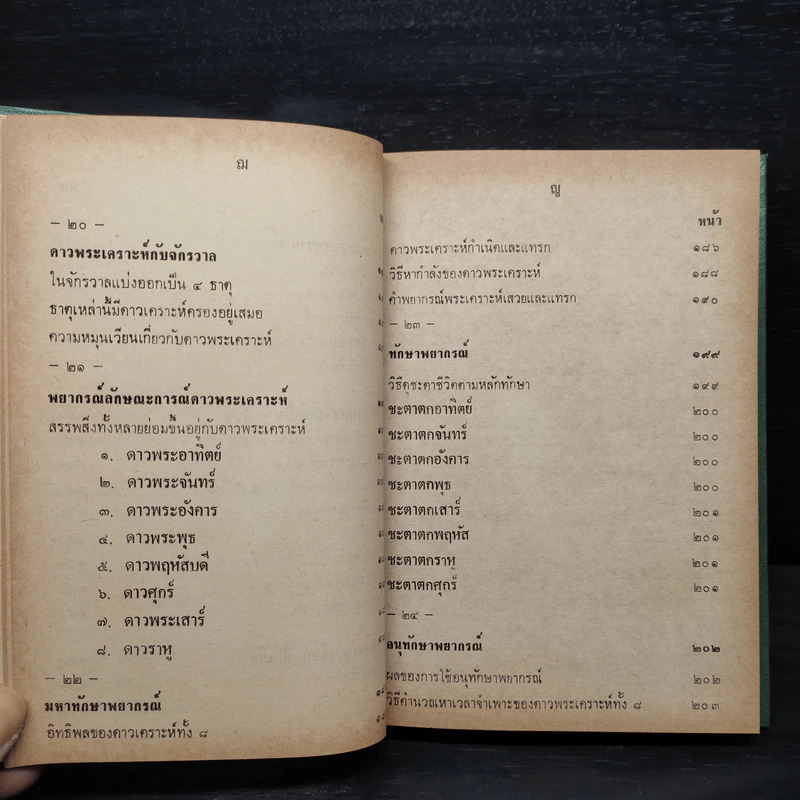 ฌ
— ๒๐ —
ดาวพระเคราะห์กับจักรวาล
ในจักรวาลแบ่งออกเป็น ๔ ธาตุ
ธาตุเหล่านี้มีดาวเคราะห์ครองอยู่เสมอ
ความหมุนเวียนเกี่ยวกับดาวพระเคราะห์
— ๒๑ —
พยากรณ์ลักษณะการณ์ดาวพระเคราะห์
สรรพสิ่งทั้งหลายย่อมขึ้นอยู่กับดาวพระเคราะห์
๑. ดาวพระอาทิตย์
๒. ดาวพระจันทร์
๓. ดาวพระอังคาร
๔. ดาวพระพุธ
๕. ดาวพฤหัสบดี
๖. ดาวศุกร์
๗. ดาวพระเสาร์
๘. ดาวราหู
— ๒๒ —
มหาทักษาพยากรณ์
อิทธิพลของดาวเคราะห์ทั้ง ๘
ญ
หน้า
ดาวพระเคราะห์กำเนิดและแทรก ๑๘๖
วิธีหากำลังของดาวพระเคราะห์ ๑๘๘
คำพยากรณ์พระเคราะห์เสวยและแทรก ๑๙๐
— ๒๓ —
ทักษาพยากรณ์ ๑๙๙
วิธีดูชะตาชีวิตตามหลักทักษา ๑๙๙
ชะตาตกอาทิตย์ ๒๐๐
ชะตาตกจันทร์ ๒๐๐
ชะตาตกอังคาร ๒๐๐
ชะตาตกพุธ ๒๐๐
ชะตาตกเสาร์ ๒๐๑
ชะตาตกพฤหัส ๒๐๑
ชะตาตกราหู ๒๐๑
ชะตาตกศุกร์ ๒๐๑
— ๒๔ —
อนุทักษาพยากรณ์ ๒๐๒
ผลของการใช้อนุทักษาพยากรณ์ ๒๐๒
วิธีคำนวณหาเวลาจำเพาะของดาวพระเคราะห์ทั้ง ๘ ๒๐๓